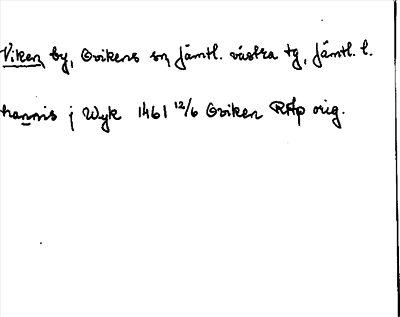 Viken, by, Ovikens sn, Jämtl. västra tg, Jämtl. l.
hannis j Wyk 1461 12/6 Oviken RAp orig.